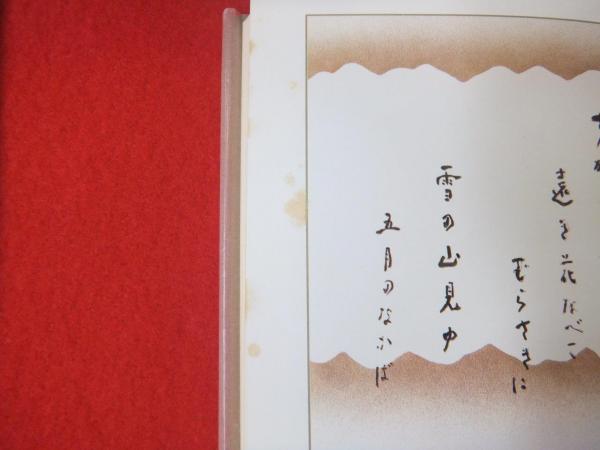 遠き花なべて
むらさきに
雪の山見ゆ
五月のなかば